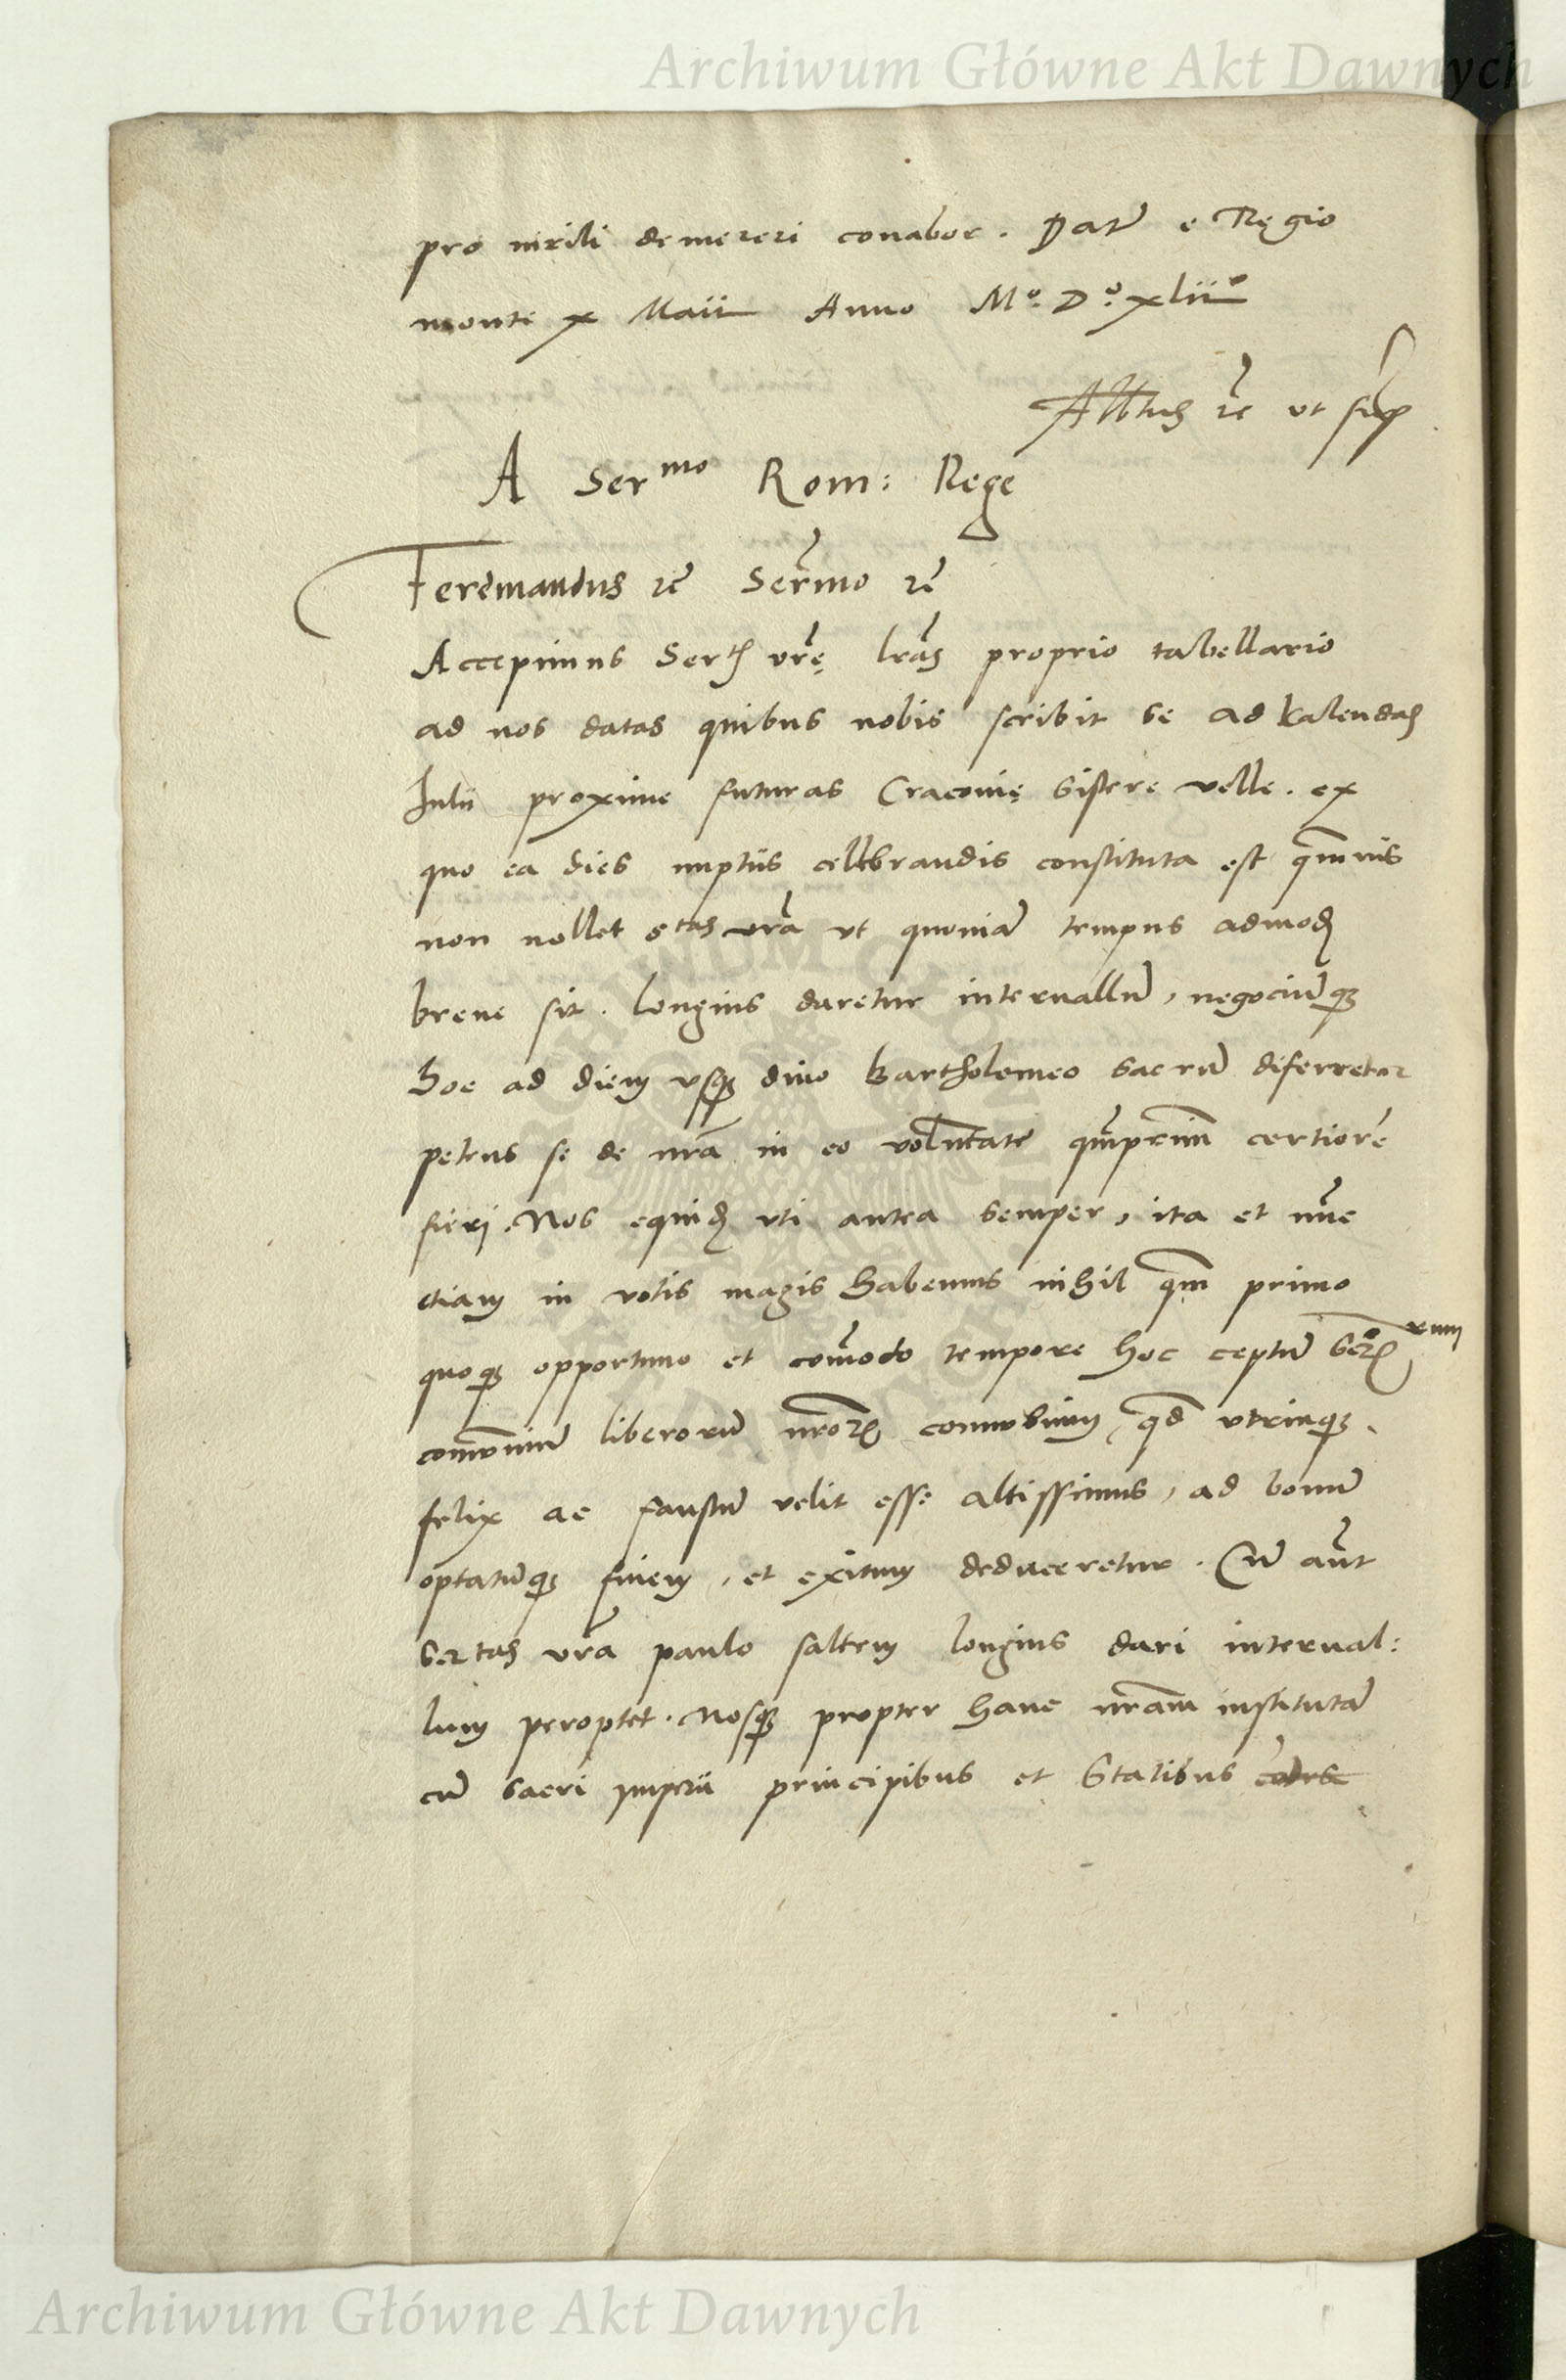 Archiwum Główne Akt Dawnych
pro virili demereri conabor. Datũ e Regio
monte x Maii Anno M.º D.º xlii.º
Albtus rc̃ ut sup.
A Ser.mo Rom: Rege
Ferdinandus rc̃ Serm̃o rc̃
Accepimus Sertis vrę̃ lrãs proprio tabellario
ad nos datas quibus nobis scribit se ad kalendas
Julii proxime futuras Cracovię sistere velle. ex
quo ea dies nuptiis celebrandis constituta est qm̃vis
non nollet Stas vrã ut quoniã tempus admodũ
breve sit. longius daretur intervallũ, negociũq;
hoc ad diem usq; divo Bartholomeo sacrũ differretur
petens se de nrã in eo voluntate qm̃primũ certiorẽ
fieri. Nos equidẽ uti antea semper, ita et nũc
etiam in votis magis habemus nihil qm̃ primo
quoq; opportuno et com̃odo tempore hoc ceptũ
com̃uniũ liberorũ nrorũ connubium, qd̃ utrinq;
felix ac faustũ velit esse altissimus, ad bonũ
optatũq; finem, et exitum deduceretur. Cũ aũt
Sertas vrã paulo saltem longius dari interval:
lum peroptet. Nosq; propter hanc nrãm institutã
cũ sacri imperii principibus et Statibus
Archiwum Główne Akt Dawnych